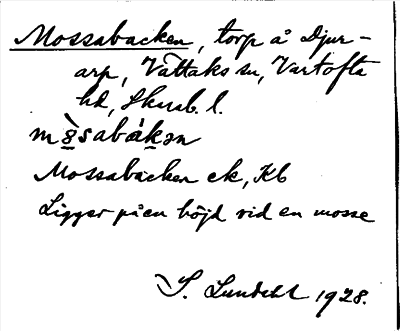 Mossabacken, torp å Djur-
arp, Vättaks sn, Vartofta
hd, Skarab. l.
mo̠sabàk̠ən
Mossabacken ek, Kb
Ligger på en höjd vid en mosse
S. Lundahl 1928.